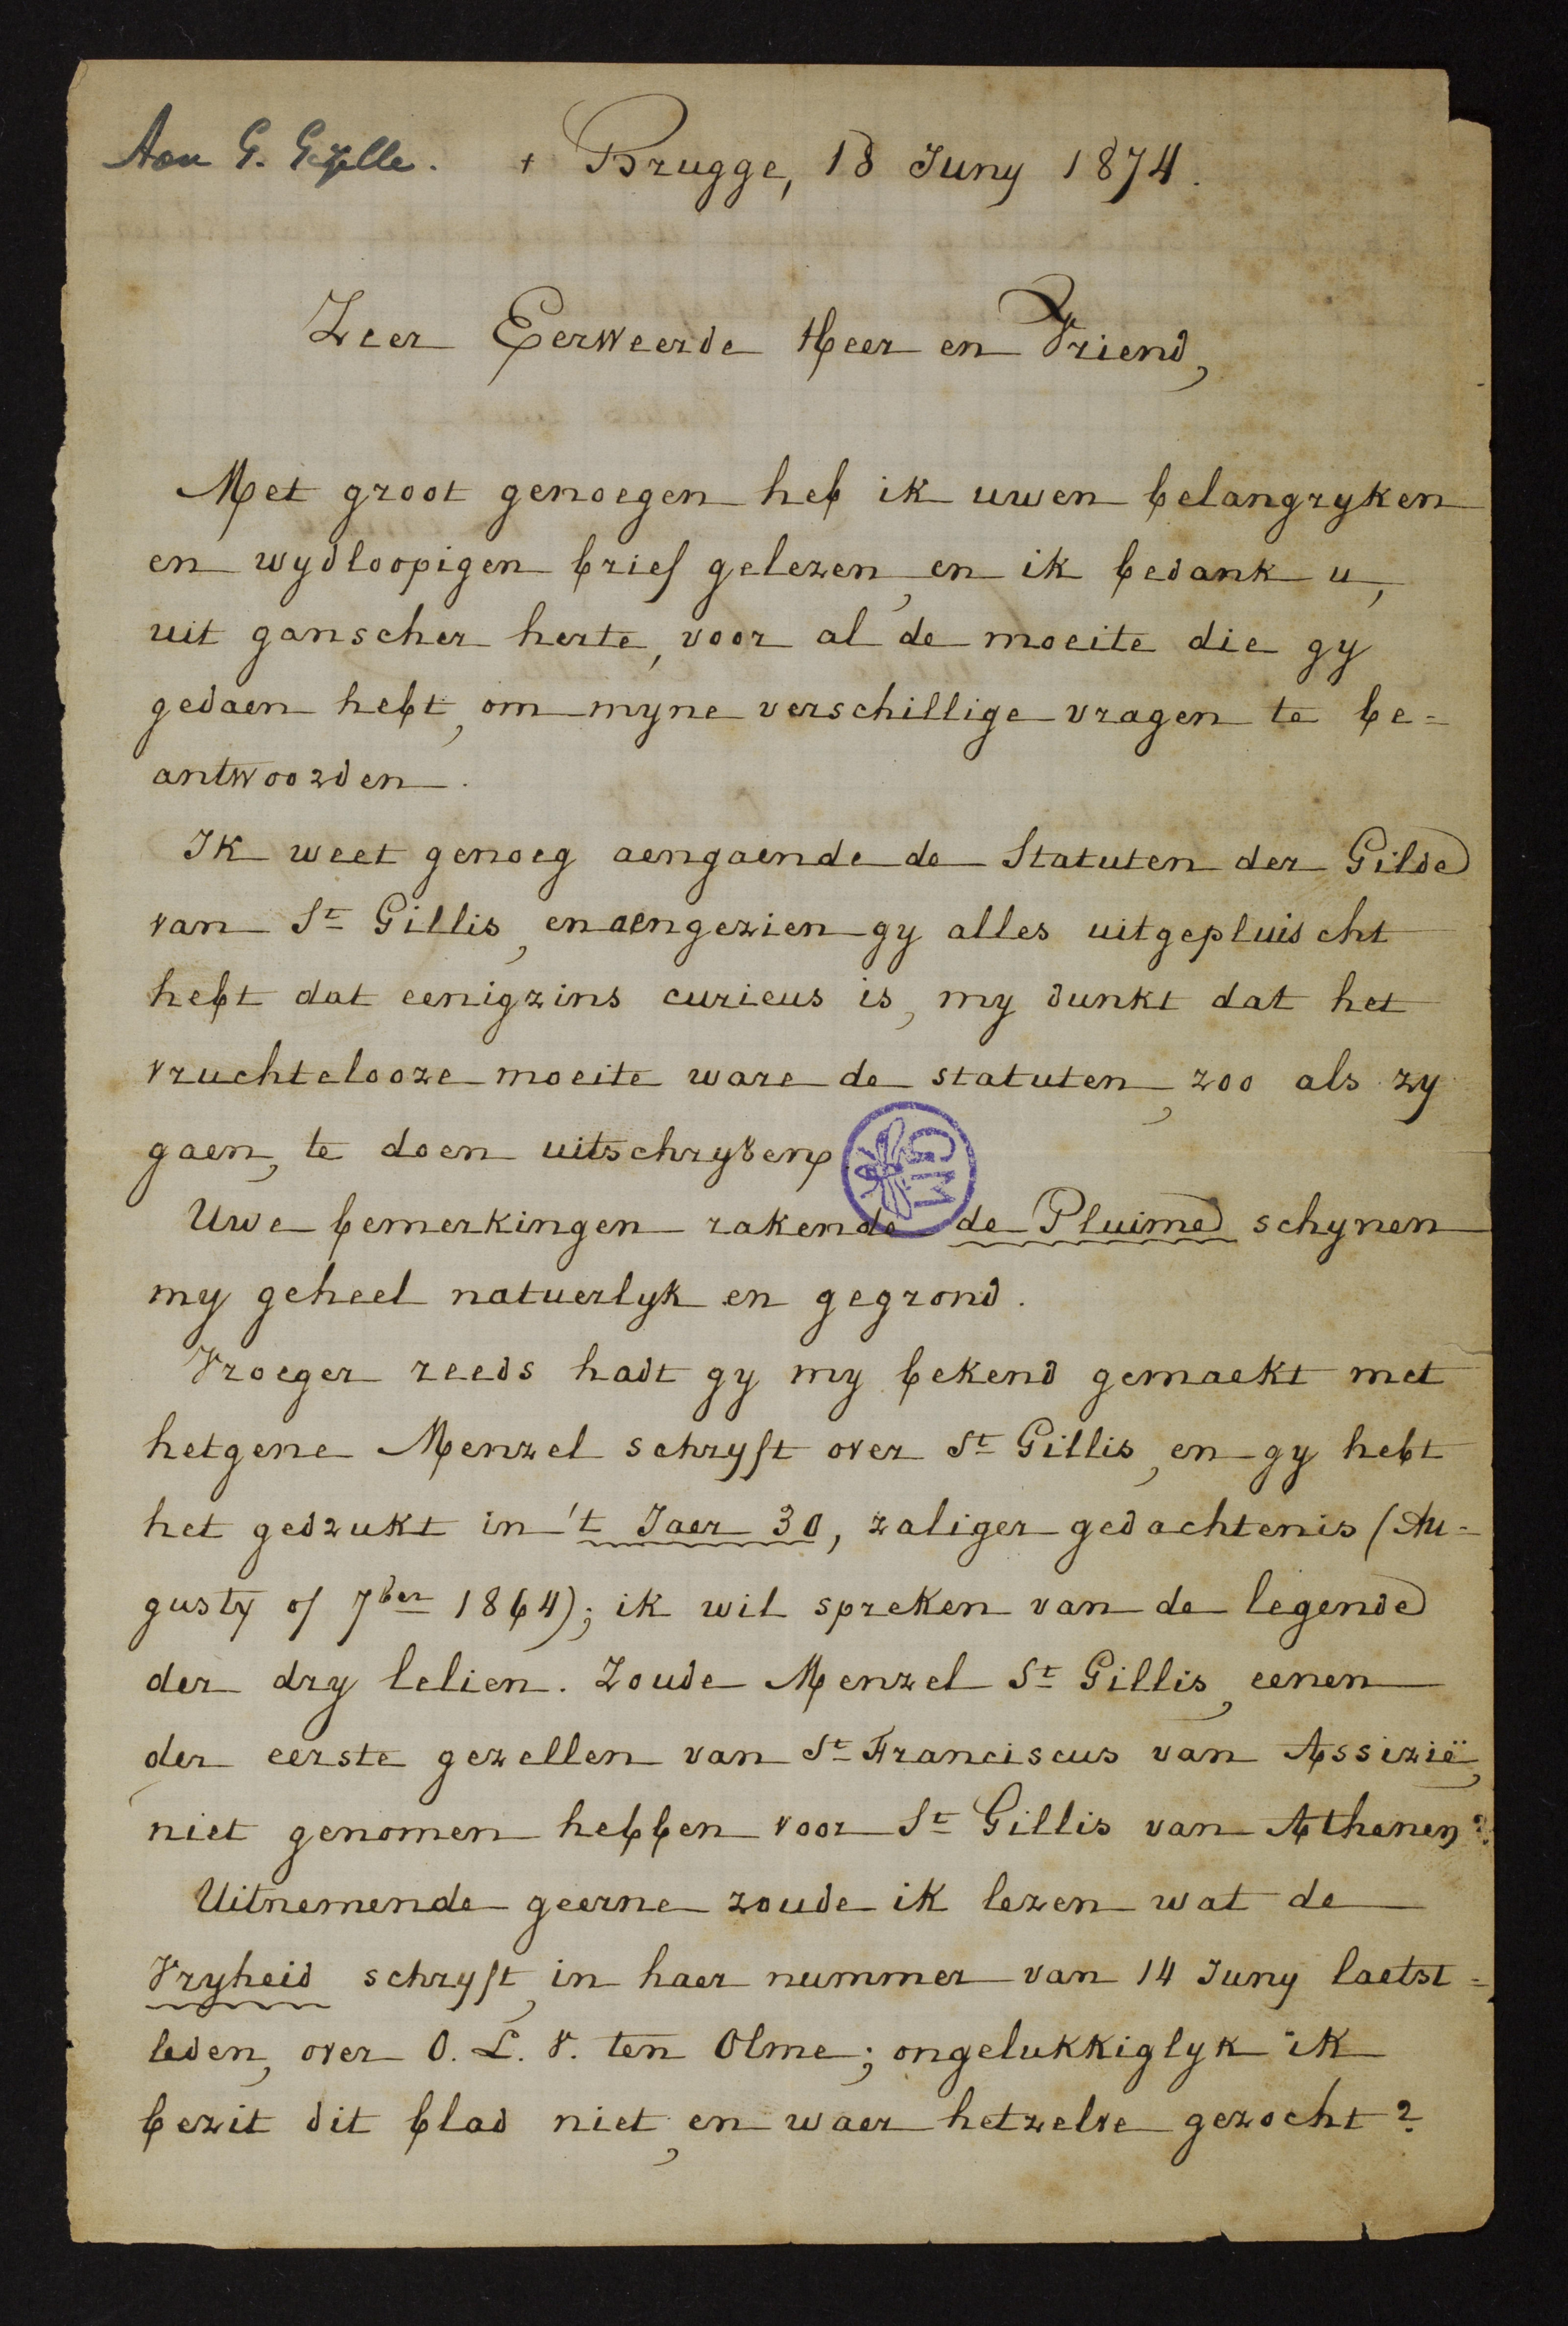 Aan G. Gezelle.
+ Brugge, 18 Juny 1874.
Zeer Eerweerde Heer en Vriend,
Met groot genoegen heb ik uwen belangryken
en wydloopigen brief gelezen, en ik bedank u,
uit ganscher herte, voor al de moeite die gy
gedaen hebt, om myne verschillige vragen te be=
antwoorden.
Ik weet genoeg aengaende de Statuten der Gilde
van St Gillis, en aengezien gy alles uitgepluischt
hebt dat eenigzins curieus is, my dunkt dat het
vruchtelooze moeite ware de statuten, zoo als zy
gaen, te doen uitschryven.
GM
Uwe bemerkingen rakende de Pluime schynen
my geheel natuerlyk en gegrond.
Vroeger reeds hadt gy my bekend gemaekt met
hetgene Menzel schryft over St Gillis, en gy hebt
het gedrukt in 't Jaer 30, zaliger gedachtenis (Au=
gusty of 7ber 1864); ik wil spreken van de legende
der dry lelien. Zoude Menzel St Gillis, eenen
der eerste gezellen van St Franciscus van Assizië,
niet genomen hebben voor St Gillis van Athenen?
Uitnemende geerne zoude ik lezen wat de
Vryheid schryft, in haer nummer van 14 Juny laetst=
leden, over O. L. V. ten Olme; ongelukkiglyk ik
bezit dit blad niet, en waer hetzelve gezocht?